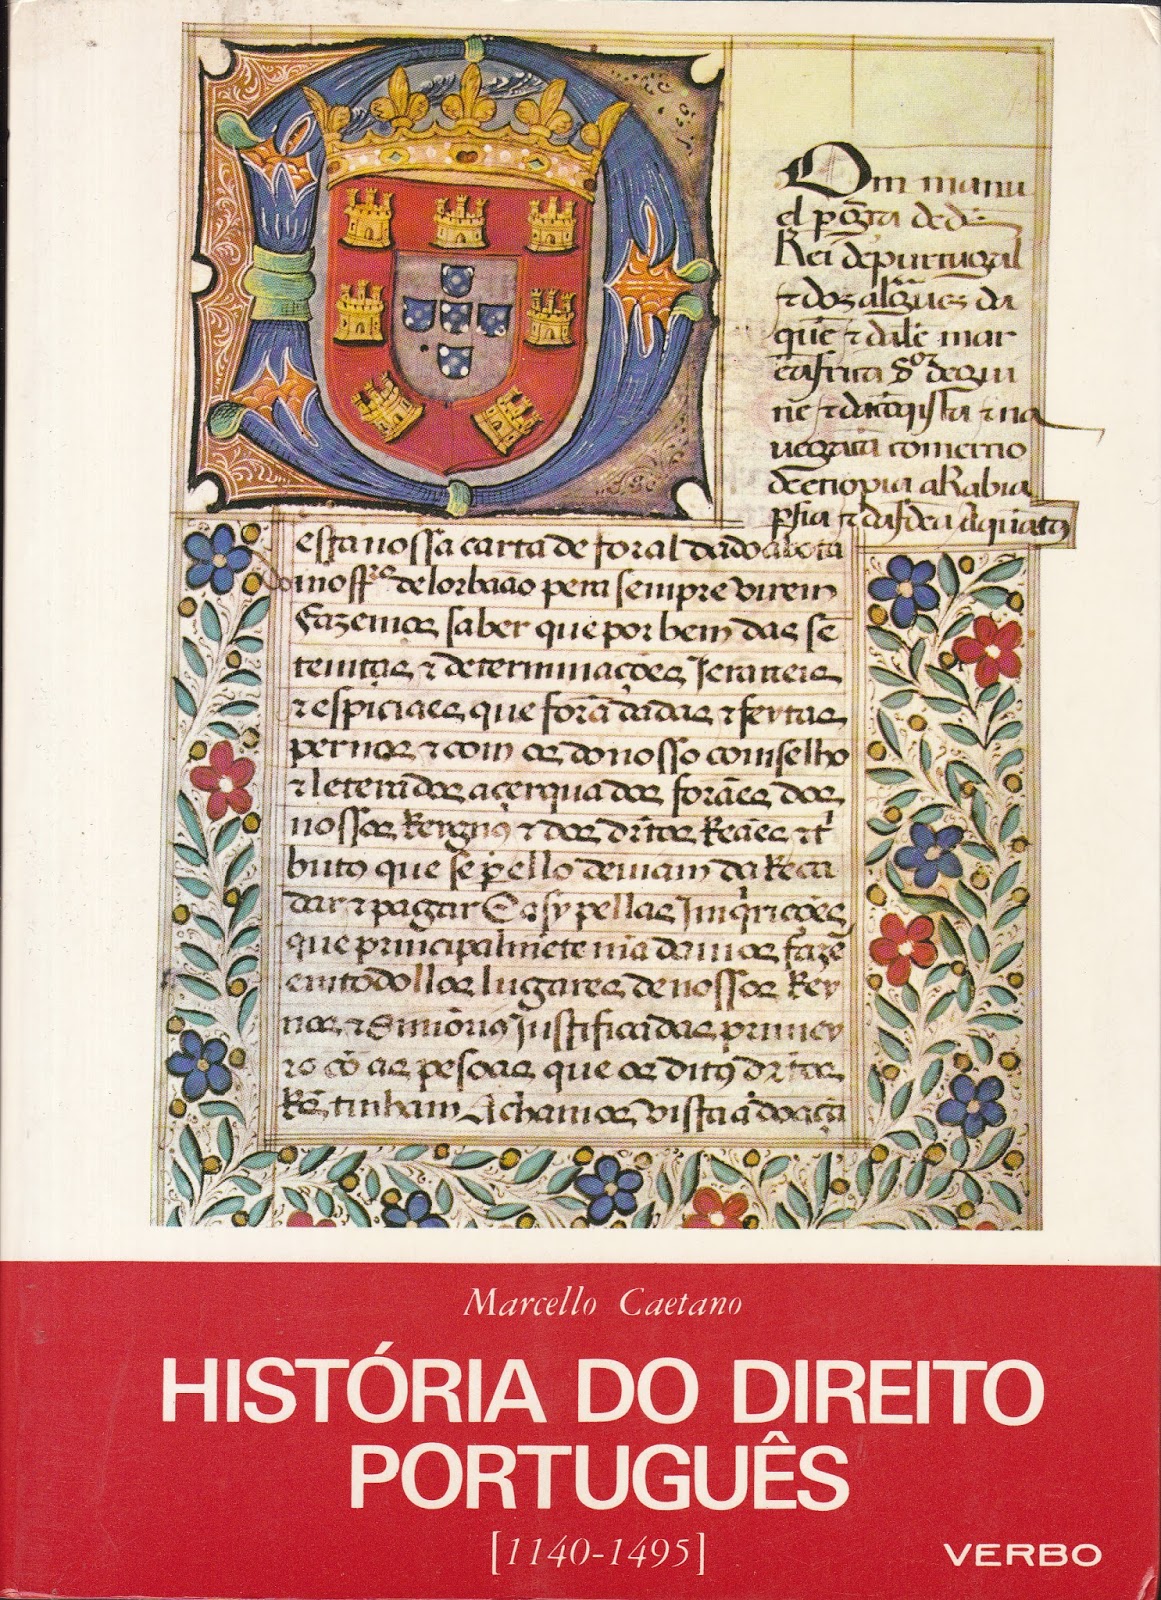 Dm manu
el p grã de d̃s
Rei de purtugal
⁊ dos algues da
que ⁊ dale mar
em africa Sõr de gui
ne ⁊ da cõquista ⁊ na
uegaçã comercio
de etiopia aRabia
psia ⁊ da India A quãtos
esta nossa carta de foral dado
de lorbaão pera sempre virem
fazemos saber que por bem das se
temças ⁊ determinações Jeraaeis
⁊ espiciaes que forã dadas ⁊ feytas
per nos ⁊ com os do nosso comselho
⁊ leterados açerqua dos foraes dos
nossos Reygnos ⁊ dos dr̃tos Reaes ⁊ t̃
butos que se p ello deviam da Reca
dar ⁊ pagar E asy pellas Imq̃rições
que principalmẽte mãdamos fazer
em todollos lugares de nossos Rey
nos ⁊ Senhorios Justificadas primey
ro cõ as pesoas que os ditos dr̃tos
Rẽs tinham Achamos vista a doaçã
Marcello Caetano
HISTÓRIA DO DIREITO
PORTUGUÊS
[1140-1495]
VERBO